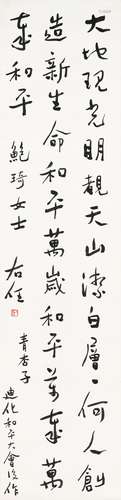 大地現光明觀天山潔白層〻何人創
造新生命和平萬歲和平万歲萬
歲和平 鮑琦女士 右任
青杏子
迪化和平大會後作